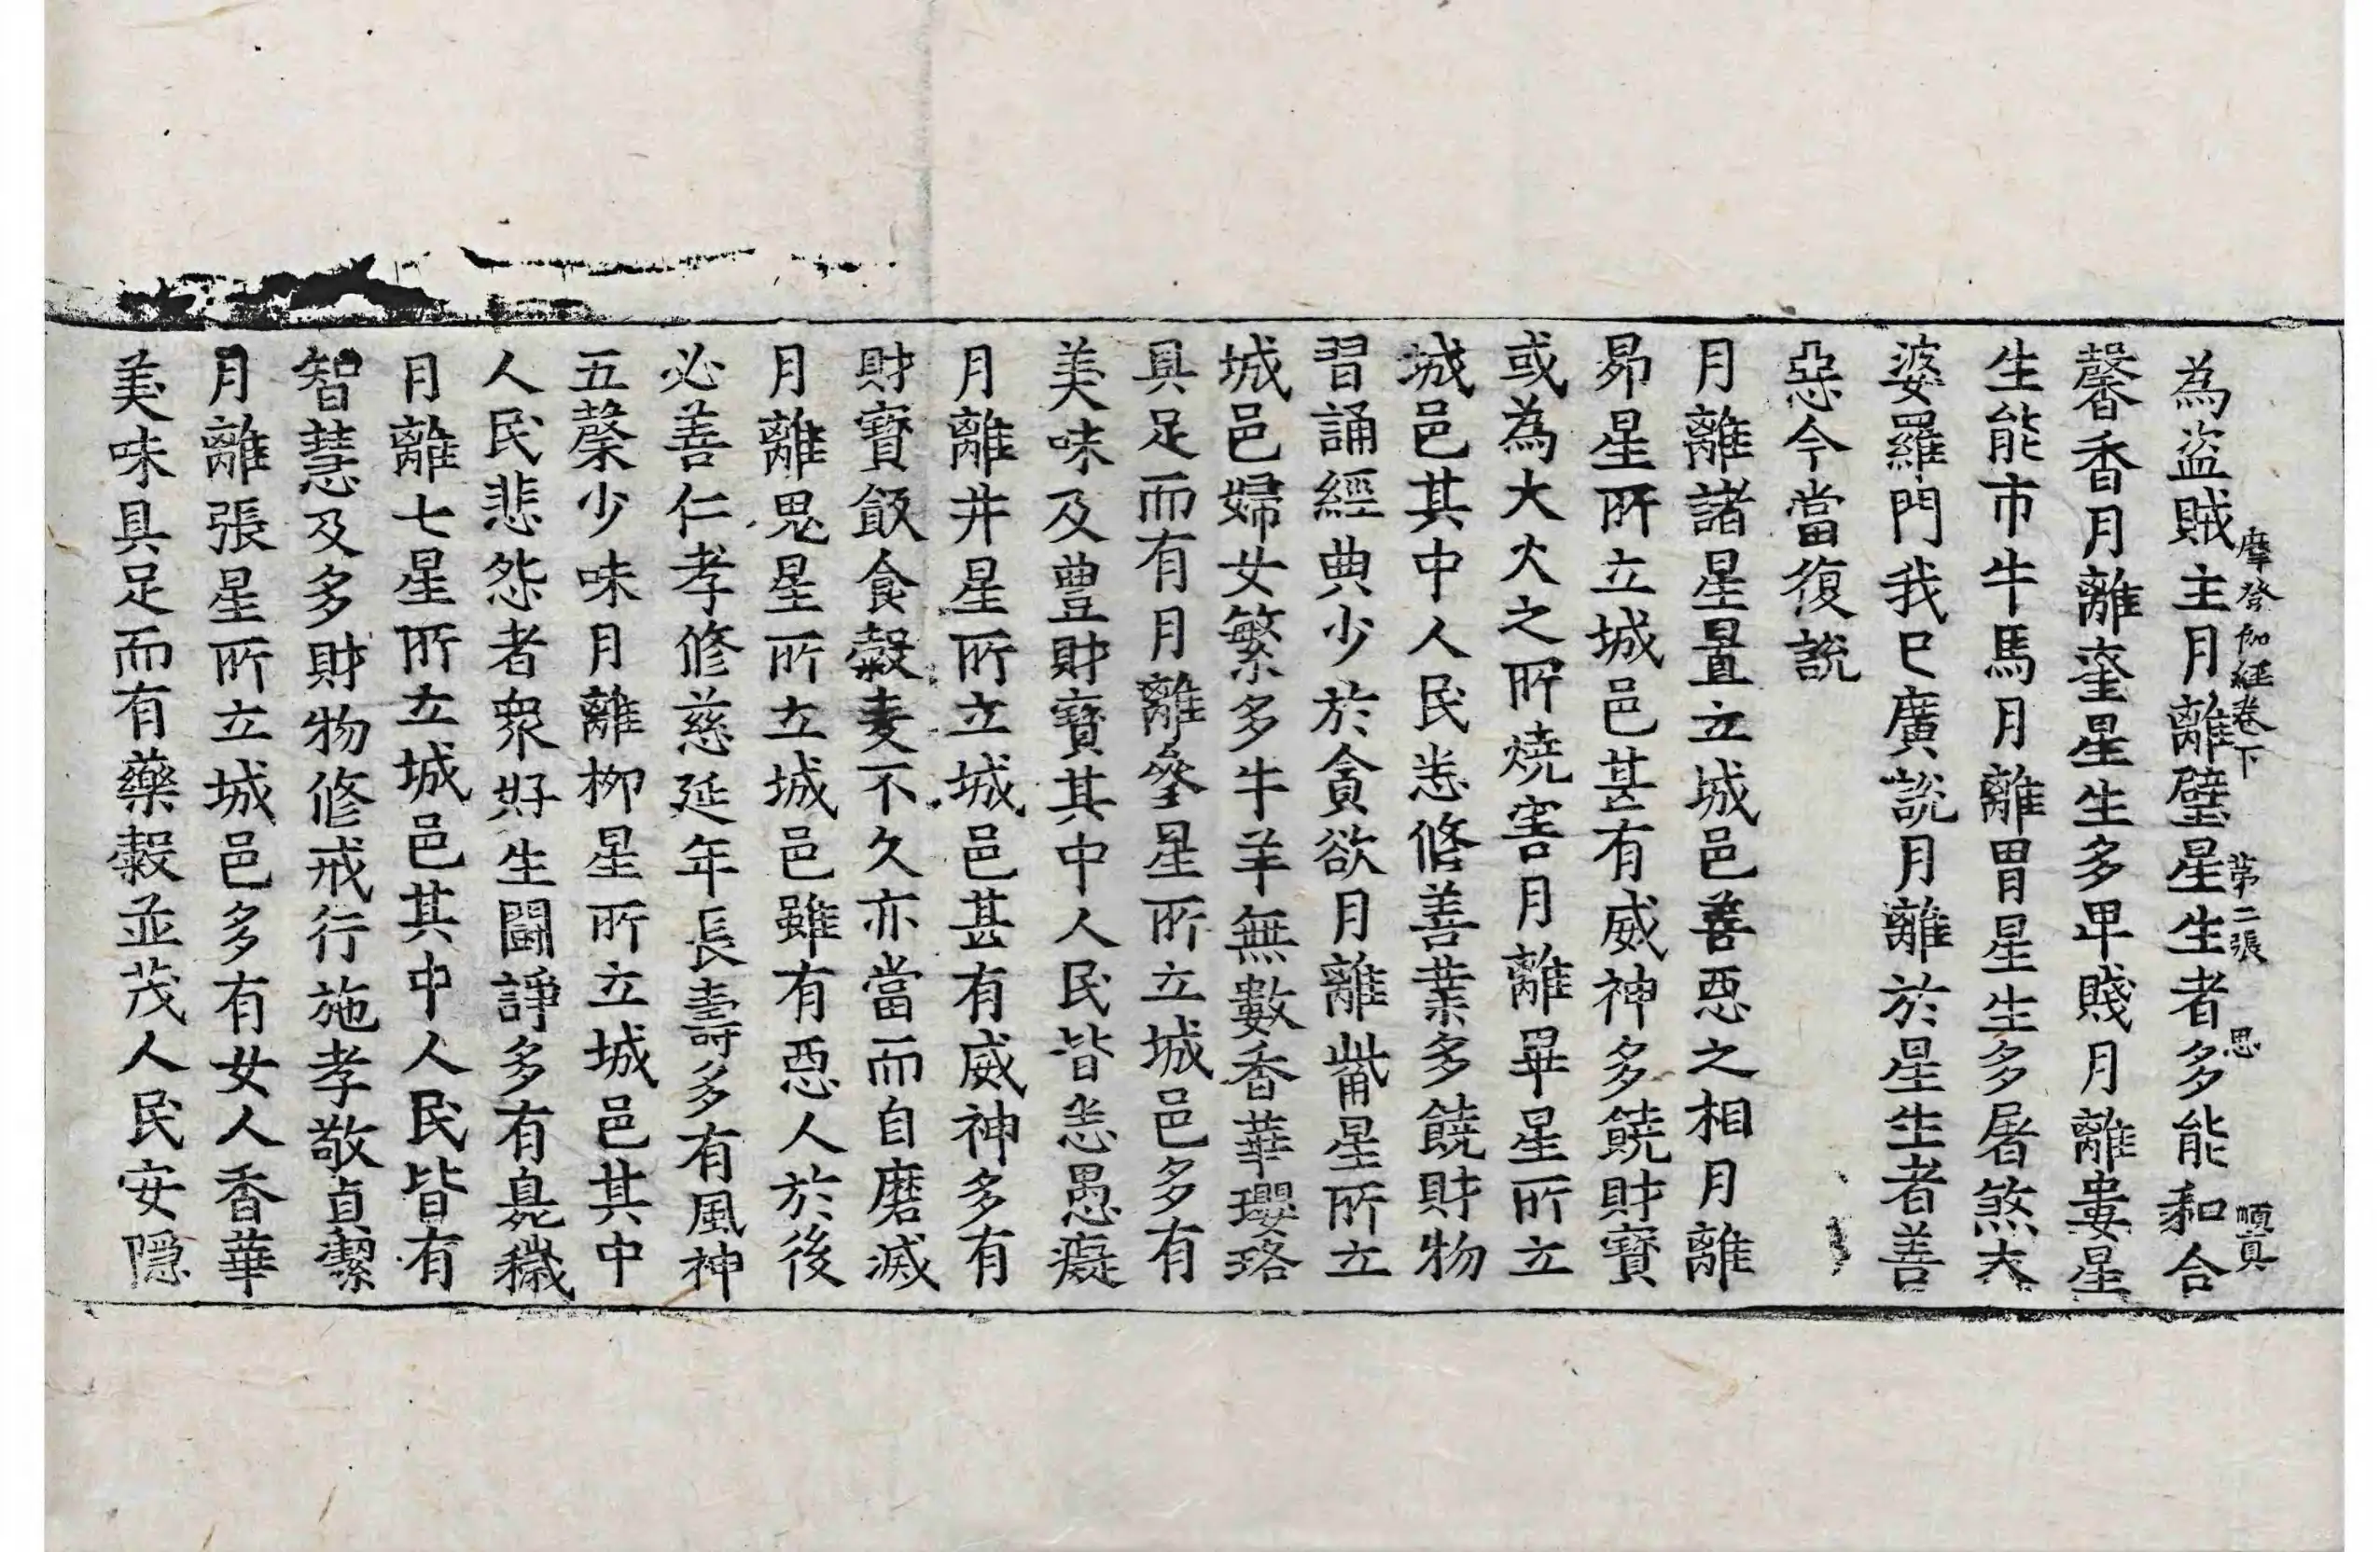 為盜賊主月離壁星生者多能和合
摩登伽經卷下 第二張 思 順真
馨香月離奎星生多卑賤月離婁星
生能市牛馬月離胃星生多屠煞夫
婆羅門我已廣說月離於星生者善
惡今當復說
月離諸星置立城邑善惡之相月離
昴星所立城邑甚有威神多饒財寶
或為大火之所燒害月離畢星所立
城邑其中人民悉修善業多饒財物
習誦經典少於貪欲月離觜星所立
城邑婦女繁多牛羊無數香華瓔珞
具足而有月離參星所立城邑多有
美味及豊財寶其中人民皆悉愚癡
月離井星所立城邑甚有威神多有
財寶飯食穀麦不久亦當而自磨滅
月離鬼星所立城邑雖有惡人於後
必善仁孝修慈延年長壽多有風神
五穀少味月離柳星所立城邑其中
人民悲怨者衆好生鬪諍多有臭穢
月離七星所立城邑其中人民皆有
智慧及多財物修戒行施孝敬貞潔
月離張星所立城邑多有女人香華
美味具足而有藥穀並茂人民安隱